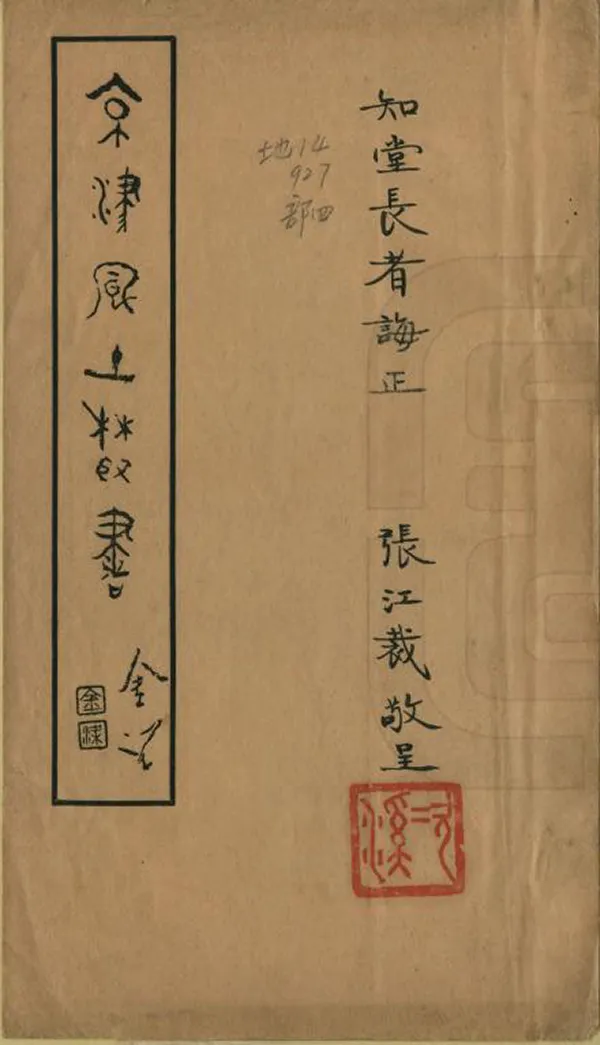 知堂長者誨正
張江裁敬呈
次溪
地14
927
部四
京津風土叢書
金梁
金
梁